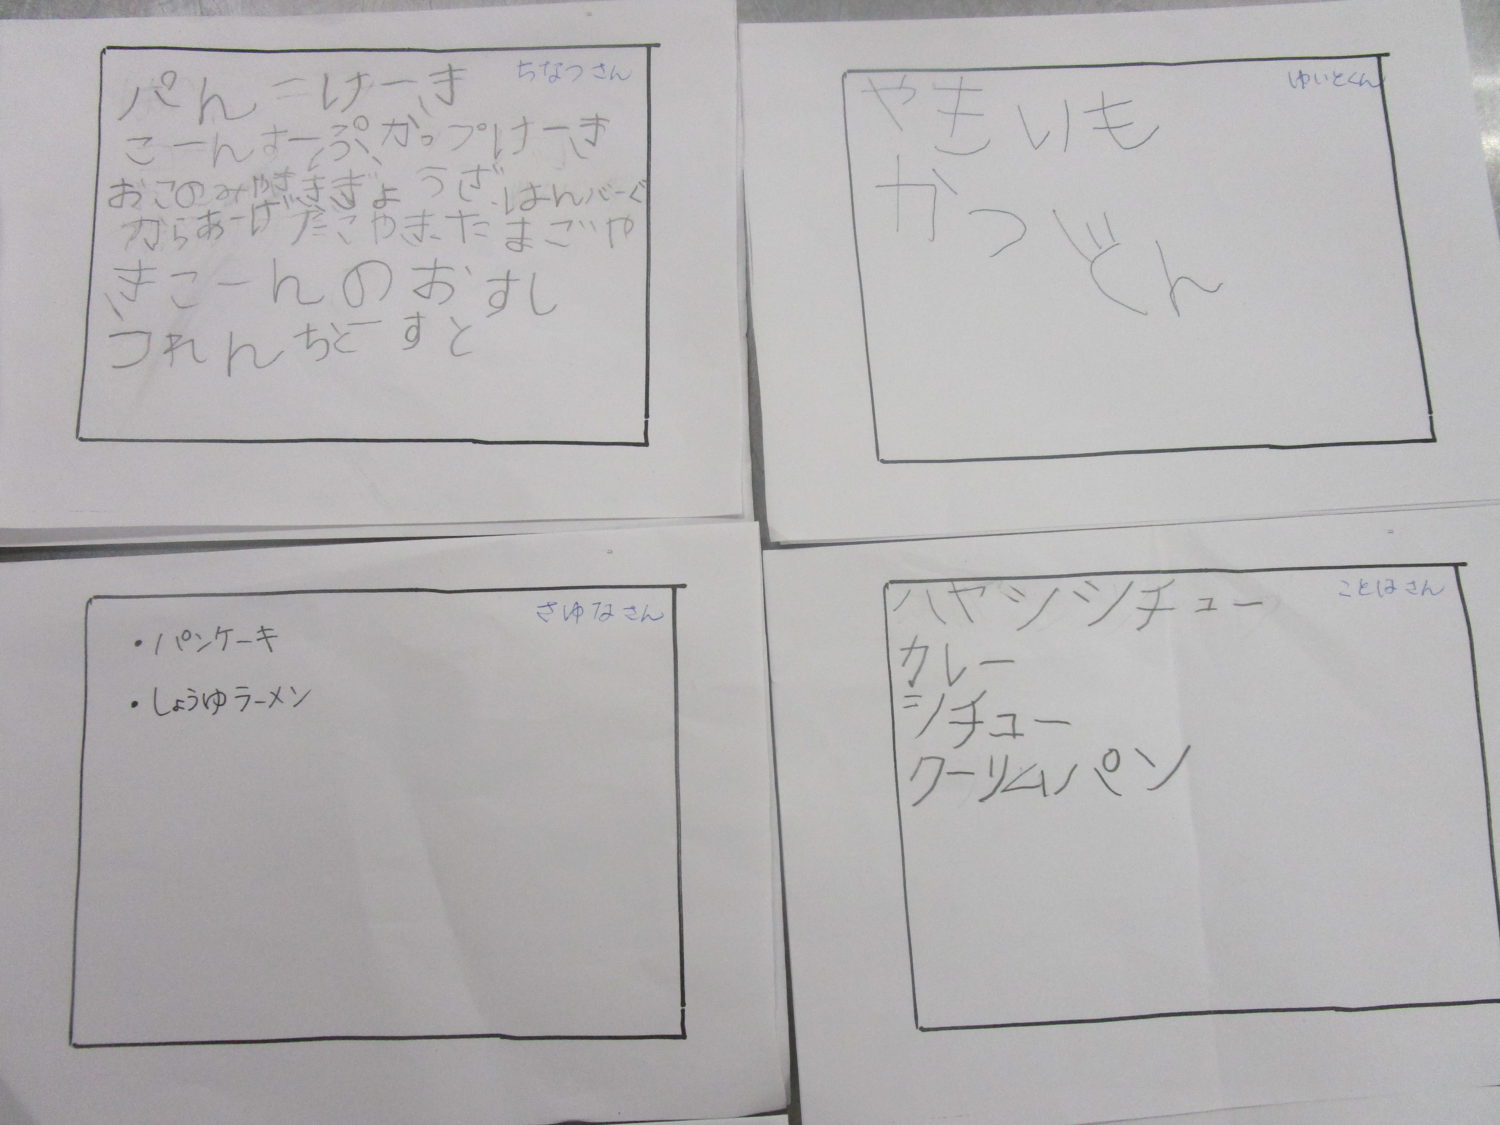 ちなつさん
ぱんけーき
こーんすーぷ かっプけーき
おこのみやき ぎょうざ はんバーぐ
からあーげ たこやき たまごや
き こーんのおすし
ふれんちとーすと
ゆいとくん
やきいも
かつどん
さゆなさん
・パンケーキ
・しょうゆラーメン
ことはさん
ハヤシシチュー
カレー
シチュー
クーリムパン